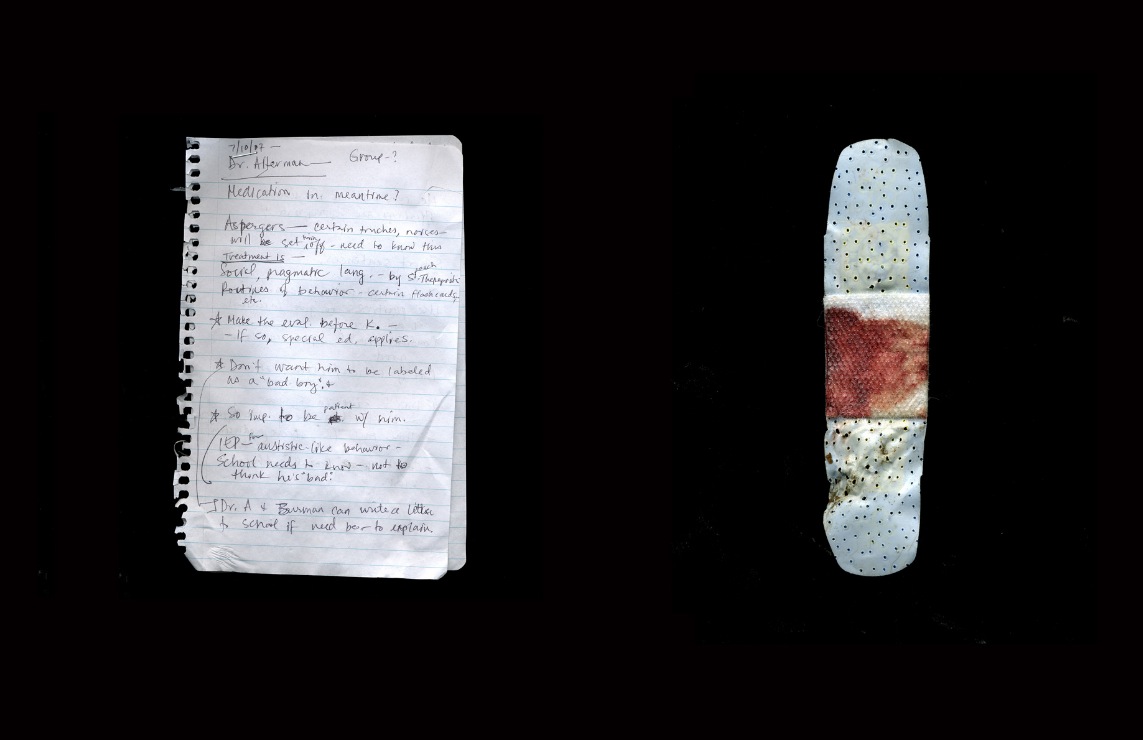 7/10/07 —
Dr. Alterman — Group-?
Medication in meantime?
Aspergers — certain touches, noises —
will be set him off - need to know this
Treatment is —
Social, pragmatic lang. - by Speech Therapist
Routines of behavior - certain flashcards,
etc.
* Make the eval. before K. —
- If so, special ed. applies.
* Don't want him to be labeled
as a "bad boy".
* So imp. to be patient w/ him.
IEP - for autistic-like behavior -
School needs to know - not to
think he's "bad".
Dr. A & can write a letter
to school if need be - to explain.